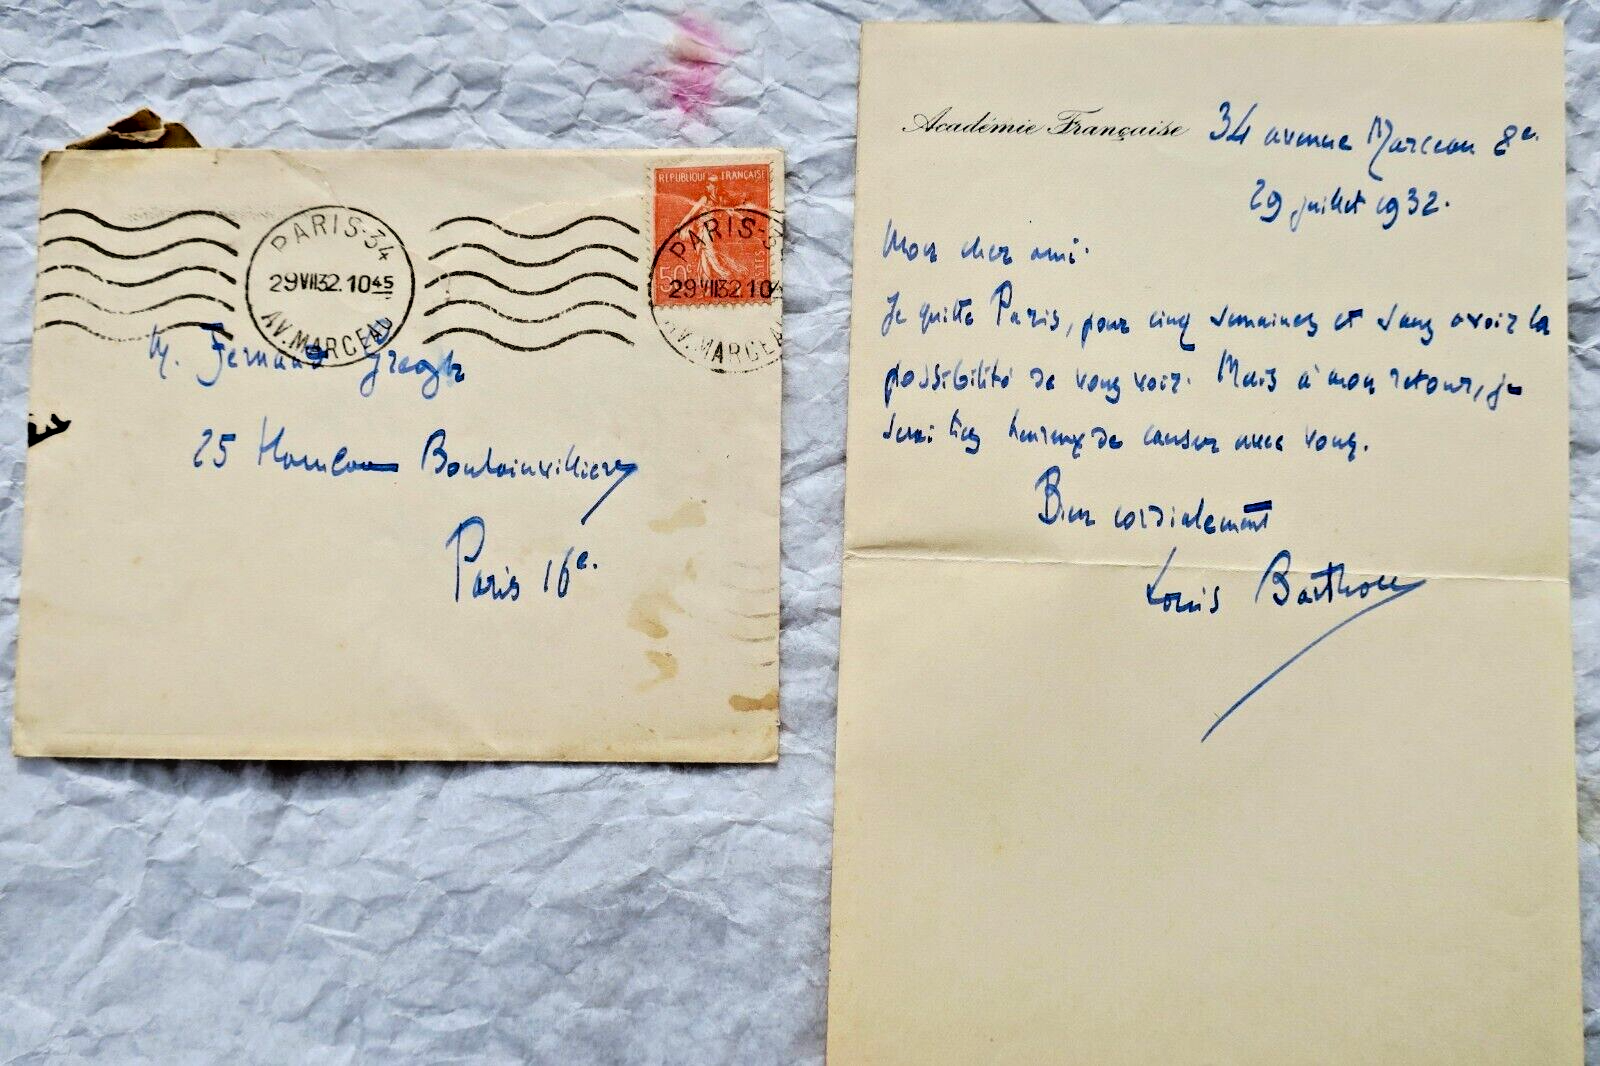 RÉPUBLIQUE FRANÇAISE
50c
POSTES
PARIS-34
29 VII 32. 10 45
AV. MARCEAU
PARIS-34
29 VII 32. 10 4
AV. MARCEAU
M. Fernand Gregh
25 Hameau Boulainvilliers
Paris 16e.
Académie Française
34 avenue Marceau 8e.
29 juillet 1932.
Mon cher ami.
Je quitte Paris, pour cinq semaines et sans avoir la
possibilité de vous voir. Mais à mon retour, je
serai très heureux de causer avec vous.
Bien cordialement
Louis Barthou